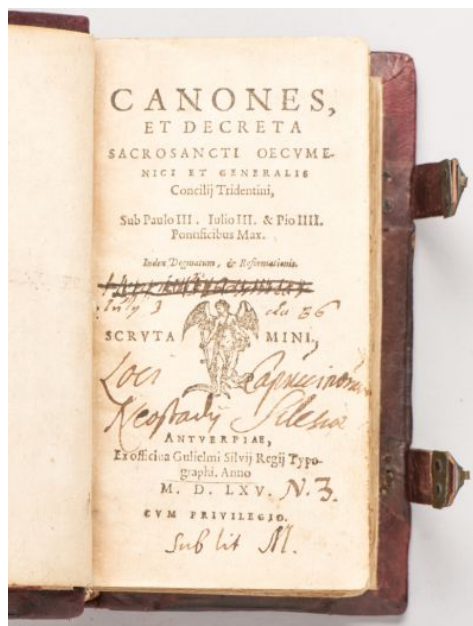 CANONES,
ET DECRETA
SACROSANCTI OECVME-
NICI ET GENERALIS
Concilij Tridentini,
Sub Paulo III. Iulio III. & Pio IIII.
Pontificibus Max.
Index Dogmatum, & Reformationis.
SCRVTAMINI,
Loci Capucinorum
Neostadij Silesiae
ANTVERPIAE,
Ex officina Gulielmi Silvij Regij Typo-
graphi. Anno
M. D. LXV. N. 3.
CVM PRIVILEGIO.
Sub lit M.